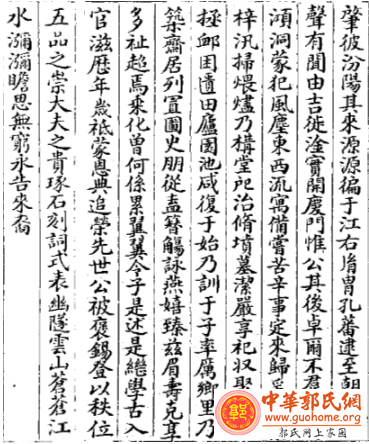 肇彼汾陽其來源源徧于江右胤胄孔蕃逮至朝
聲有聞由吉徙淦實開慶門惟公其後卓爾不羣
澒洞蒙犯風塵東西流寓備嘗苦辛事定來歸
梓汛掃煨燼乃構堂戺治脩墳墓潔嚴享祀収聚
拯䘏困遺田廬園池咸復于始乃訓于子率厲鄉里乃
築齋居列寘圖史朋從盍簪觴詠燕嬉臻兹眉壽克享
多祉超焉乗化曽何係累翼翼令子是述是繼學古入
官滋歴年歲祗蒙恩典追榮先世公被褒錫登以秩位
五品之崇大夫之貴琢石刻詞式表幽隧雲山蒼蒼江
水瀰瀰瞻思無窮永告來裔
中華郭氏網
www.guohome.org
郭氏網上家園